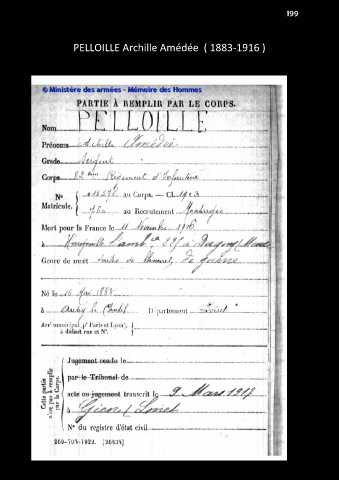 199
PELLOILLE Archille Amédée ( 1883-1916 )
© Ministère des armées - Mémoire des Hommes
PARTIE À REMPLIR PAR LE CORPS.
Nom PELLOILLE
Prénoms Achille Amédée
Grade Sergent
Corps 82 ème Régiment d'Infanterie
N° au Corps. — Cl. 1903
Matricule. au Recrutement Montargis
Mort pour la France le 11 Novembre 1916
à
Genre de mort suites de blessures de guerre
Né le 16 Mai 1883
à Département Loiret
Arrt municipal (pr Paris et Lyon),
à défaut rue et N°.
Cette partie n'est pas à remplir par le Corps.
Jugement rendu le
par le Tribunal de
acte ou jugement transcrit le 9 Mars 1917
à Gien Loiret
N° du registre d'état civil
269-708-1922. [26434]